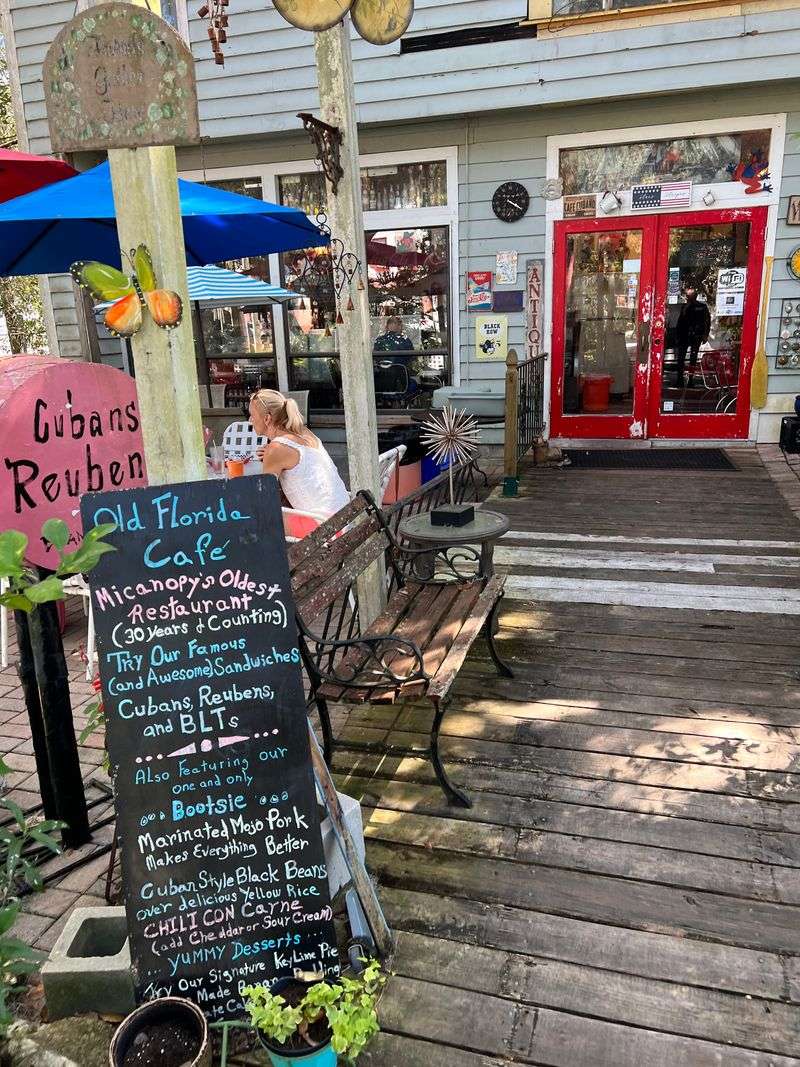 Garden
CAFÉ CUBANO
WiFi
BLACK
ANTIQUE
Cubans
Reuben
Old Florida
Café
Micanopy's Oldest
Restaurant
(30 Years & Counting)
Try Our Famous
(and Awesome) Sandwiches
Cubans, Reubens,
and BLTs
Also Featuring our
one and only
Bootsie
Marinated Mojo Pork
Makes Everything Better
Cuban Style Black Beans
over delicious Yellow Rice
CHILI CON CARNE
(add Cheddar or Sour Cream)
YUMMY Desserts
Try Our Signature Key Lime Pie
Made